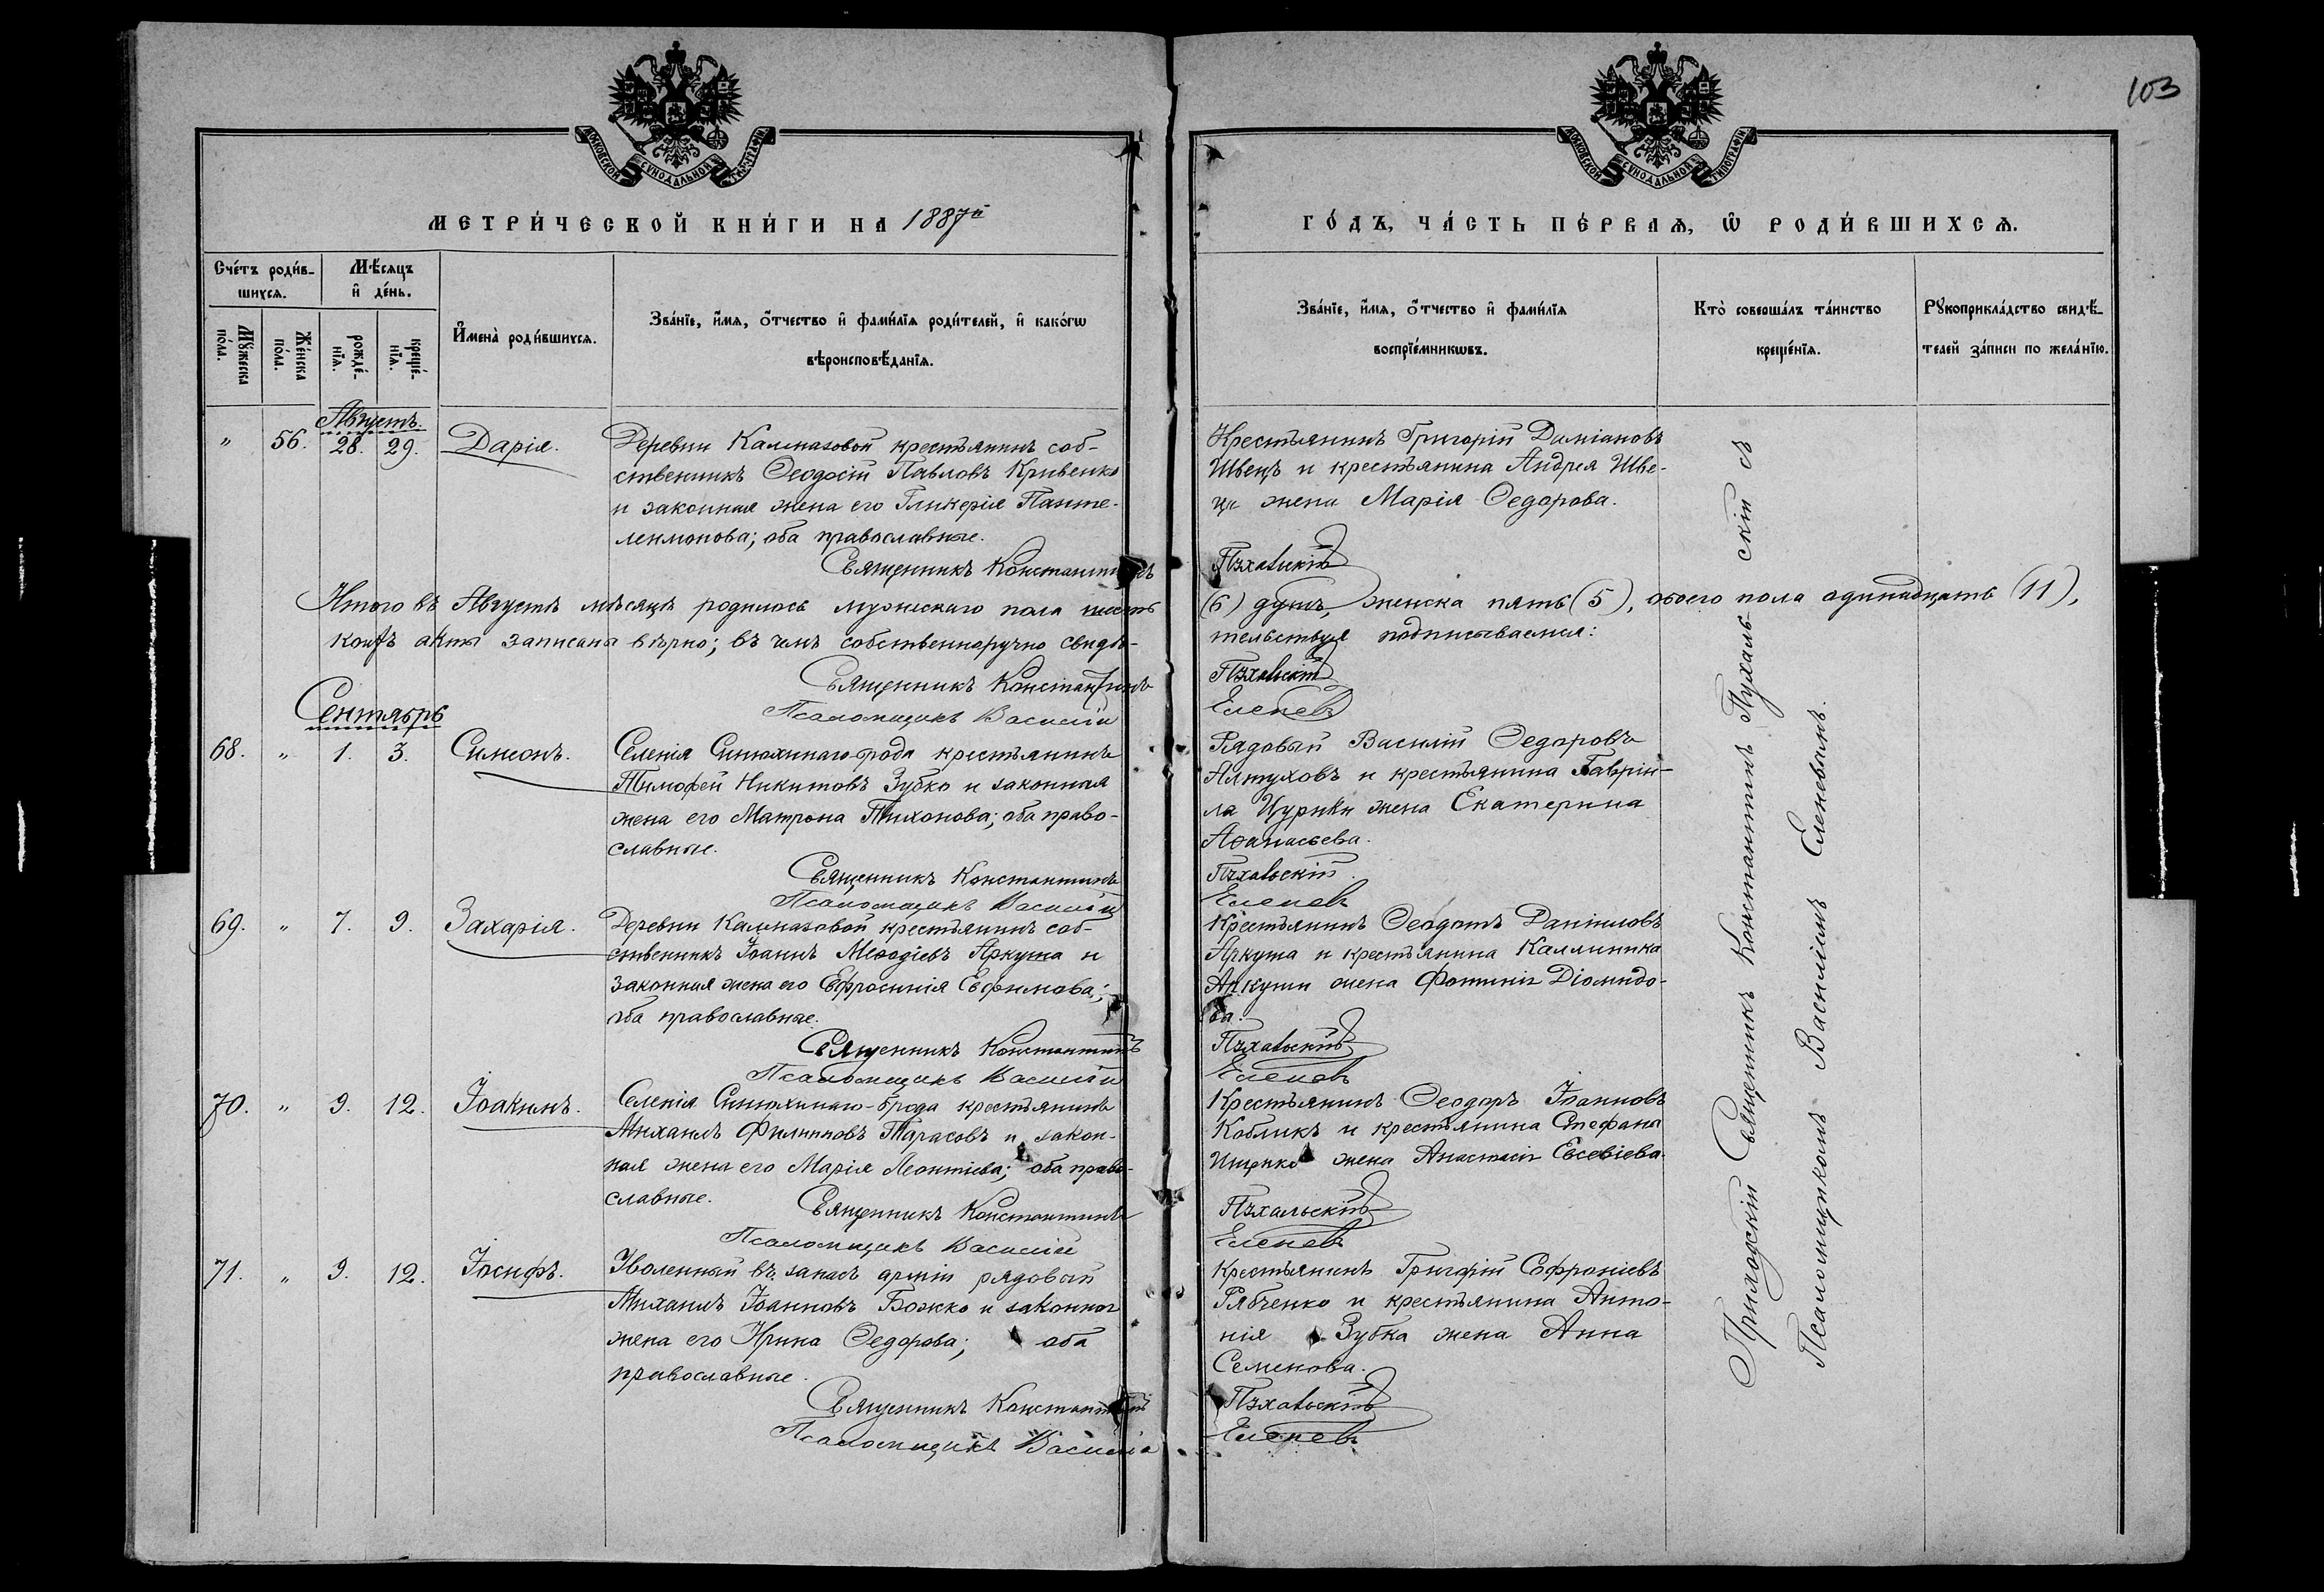 103
МОСКОВСКОЙ СѴНОДАЛЬНОЙ ТИПОГРАФІИ
МОСКОВСКОЙ СѴНОДАЛЬНОЙ ТИПОГРАФІИ
МЕТРИ́ЧЕСКОЙ КНИ́ГИ НА 1887й
ГО́ДЪ, ЧА́СТЬ ПЕ́РВАѦ, Ѡ РОДИ́ВШИХСѦ.
Сче́тъ роди́в-
шихсѧ.
Мѣ́сѧцъ
и҆ де́нь.
Мꙋ́жеска
по́ла.
Же́нска
по́ла.
рожде́-
нїѧ.
креще́-
нїѧ.
И҆мена̀ роди́вшихсѧ.
Зва́нїе, и҆́мѧ, ѻ҆́тчество и҆ фами́лїѧ роди́телей, и҆ како́гѡ
вѣроисповѣ́данїѧ.
Зва́нїе, и҆́мѧ, ѻ҆́тчество и҆ фами́лїѧ
воспрїе́мникѡвъ.
Кто̀ соверша́лъ та́инство
креще́нїѧ.
Рꙋкоприкла́дство свидѣ́-
телей за́писи по жела́нїю.
Августъ.
" 56. 28. 29. Дарія.
Деревни Калмазовой крестьянинъ соб-
ственникъ Ѳеодосій Павловъ Кривенко
и законная жена его Гликерія Панте-
леимонова; оба православные.
Священникъ Константинъ
Крестьянинъ Григорій Даміановъ
Швецъ и крестьянина Андрея Шве-
ца жена Марія Ѳедорова.
Пухальскій
Итого въ Августѣ мѣсяцѣ родилось мужескаго пола шесть
(6) душъ, женска пять (5), обоего пола одинадцать (11),
коихъ акты записаны вѣрно; въ чемъ собственноручно свидѣ-
тельствуя подписываемся:
Священникъ Константинъ
Пухальскій
Псаломщикъ Василій
Еленевъ
Сентябрь
68. " 1. 3. Симеонъ.
Селенія Синюхинаго-брода крестьянинъ
Тимофей Никитовъ Зубко и законная
жена его Матрона Тихонова; оба право-
славные.
Священникъ Константинъ
Псаломщикъ Василій
Рядовый Василій Ѳедоровъ
Алтуховъ и крестьянина Гаврі-
ла Цурики жена Екатерина
Аѳанасьева.
Пухальскій
Еленевъ
69. " 7. 9. Захарія.
Деревни Калмазовой крестьянинъ соб-
ственникъ Іоаннъ Меѳодіевъ Аркуша и
законная жена его Ефросинія Евфимова;
оба православные.
Священникъ Константинъ
Псаломщикъ Василій
Крестьянинъ Ѳеодотъ Даніиловъ
Аркуша и крестьянина Каллиника
Аркуши жена Фотинія Діомидо-
ва.
Пухальскій
Еленевъ
70. " 9. 12. Іоакимъ.
Селенія Синюхинаго-брода крестьянинъ
Михаилъ Филиповъ Тарасовъ и закон-
ная жена его Марія Леонтіева; оба право-
славные.
Священникъ Константинъ
Псаломщикъ Василій
Крестьянинъ Ѳеодоръ Іоанновъ
Кобликъ и крестьянина Стефана
Ищенко жена Анастасія Евсевіева.
Пухальскій
Еленевъ
71. " 9. 12. Іосифъ.
Уволенный въ запасъ арміи рядовый
Михаилъ Іоанновъ Божко и законная
жена его Ирина Ѳедорова; оба
православные.
Священникъ Константинъ
Псаломщикъ Василій
Крестьянинъ Григорій Софроніевъ
Рябченко и крестьянина Анто-
нія Зубка жена Анна
Семенова.
Пухальскій
Еленевъ
Приходскій Священникъ Константинъ Пухальскій съ
Псаломщикомъ Василіемъ Еленевымъ.